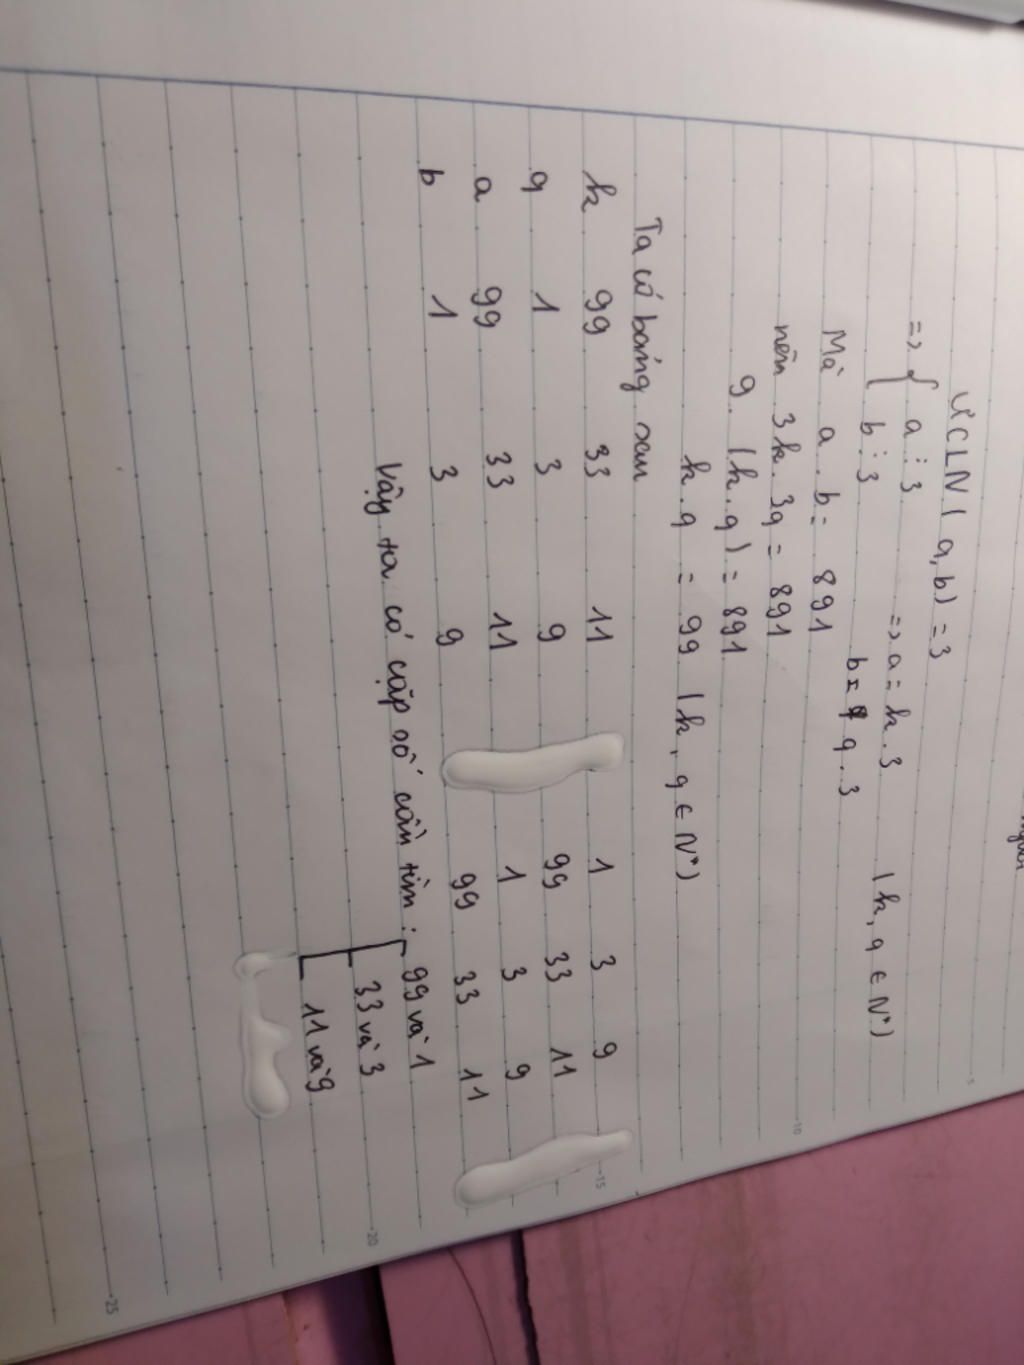 người
ƯCLN ( a,b) = 3
=> { a ⋮ 3 => a = k . 3 ( k, q ∈ N*)
b ⋮ 3 b = q . 3
Mà a . b = 891
nên 3k . 3q = 891
9 . (k . q ) = 891
k . q = 99 ( k , q ∈ N*)
Ta có bảng sau
k 99 33 11 1 3 9
q 1 3 9 99 33 11
a 99 33 11 1 3 9
b 1 3 9 99 33 11
Vậy ta có cặp số cần tìm : 99 và 1
33 và 3
11 và 9
5
10
15
20
25